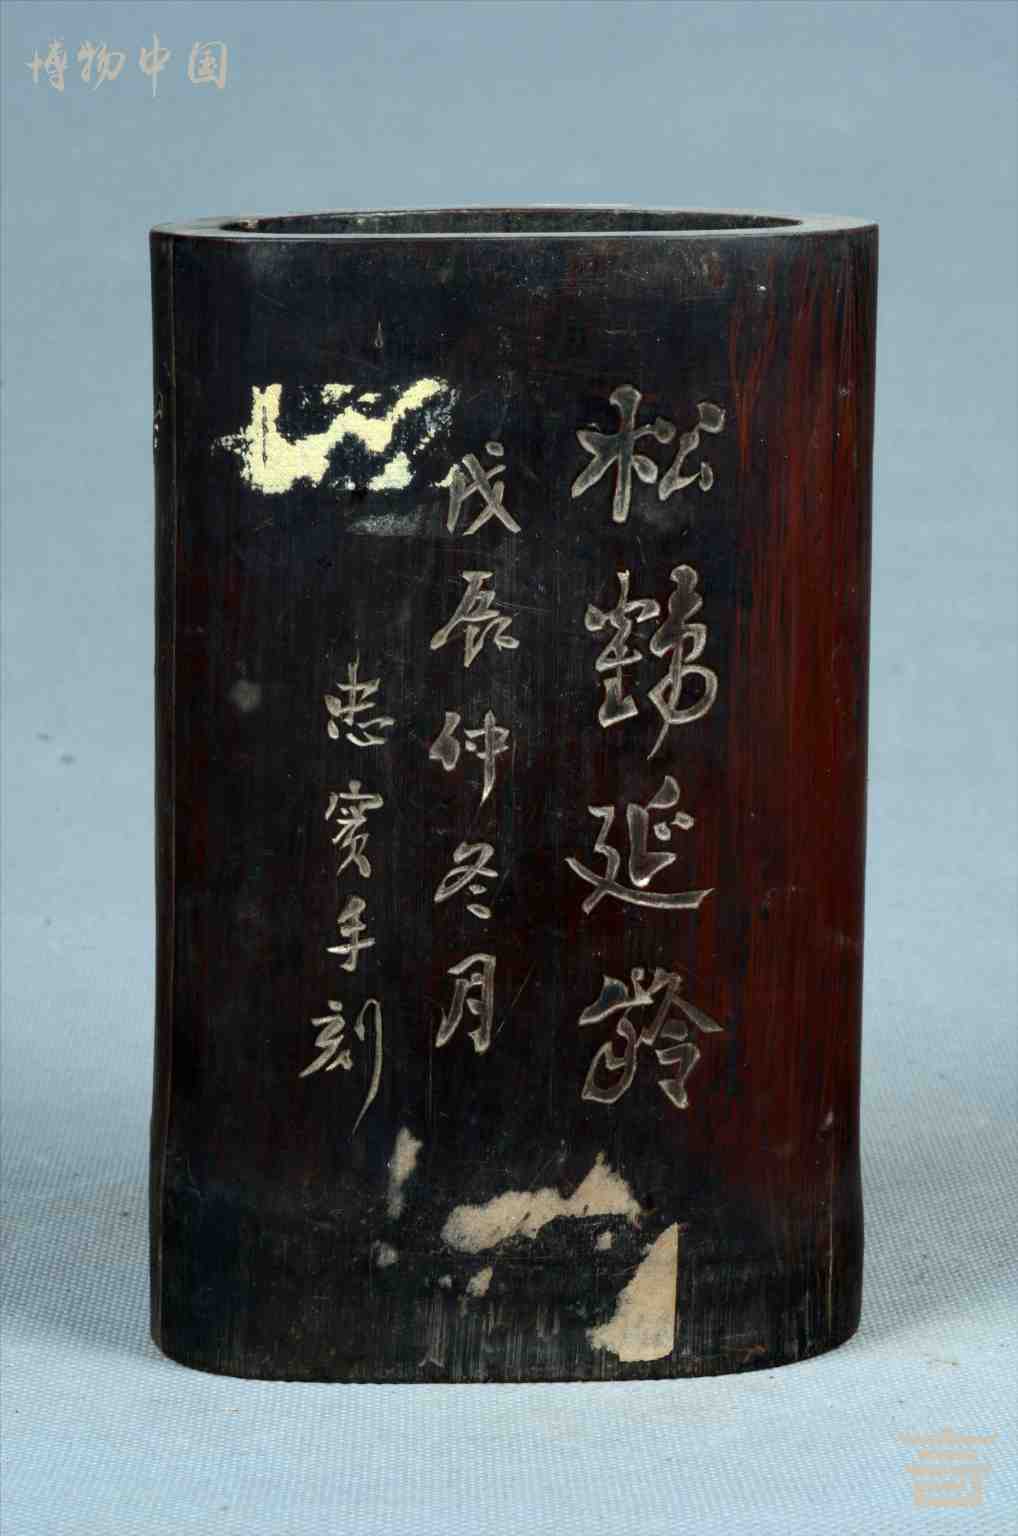 博物中国
松鶴延齡
戊辰仲冬月
忠實手刻